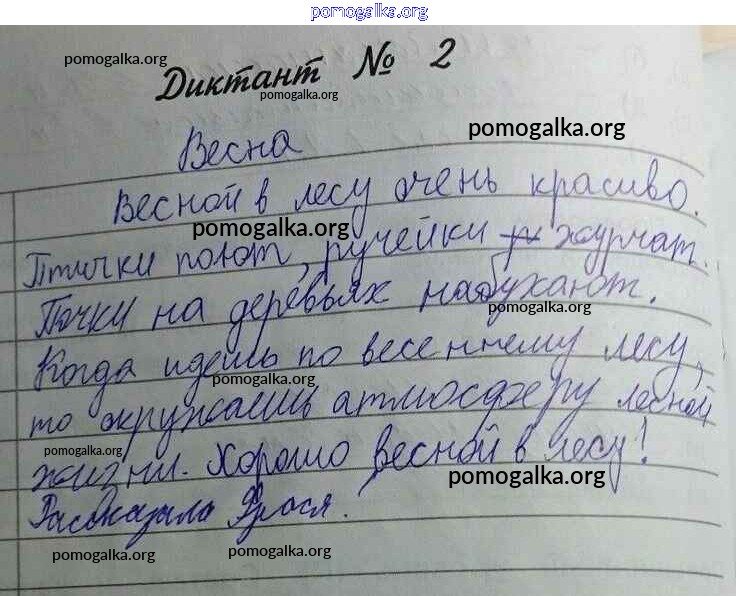 pomogalka.org
pomogalka.org
Диктант № 2
pomogalka.org
pomogalka.org
Весна
Весной в лесу очень красиво.
pomogalka.org
Птички поют, ручейки журчат.
Почки на деревьях набухают.
pomogalka.org
Когда идешь по весеннему лесу,
pomogalka.org
то окружаешь атмосферу лесной
pomogalka.org
жизни. Хорошо весной в лесу!
pomogalka.org
Рассказала Фрося.
pomogalka.org
pomogalka.org